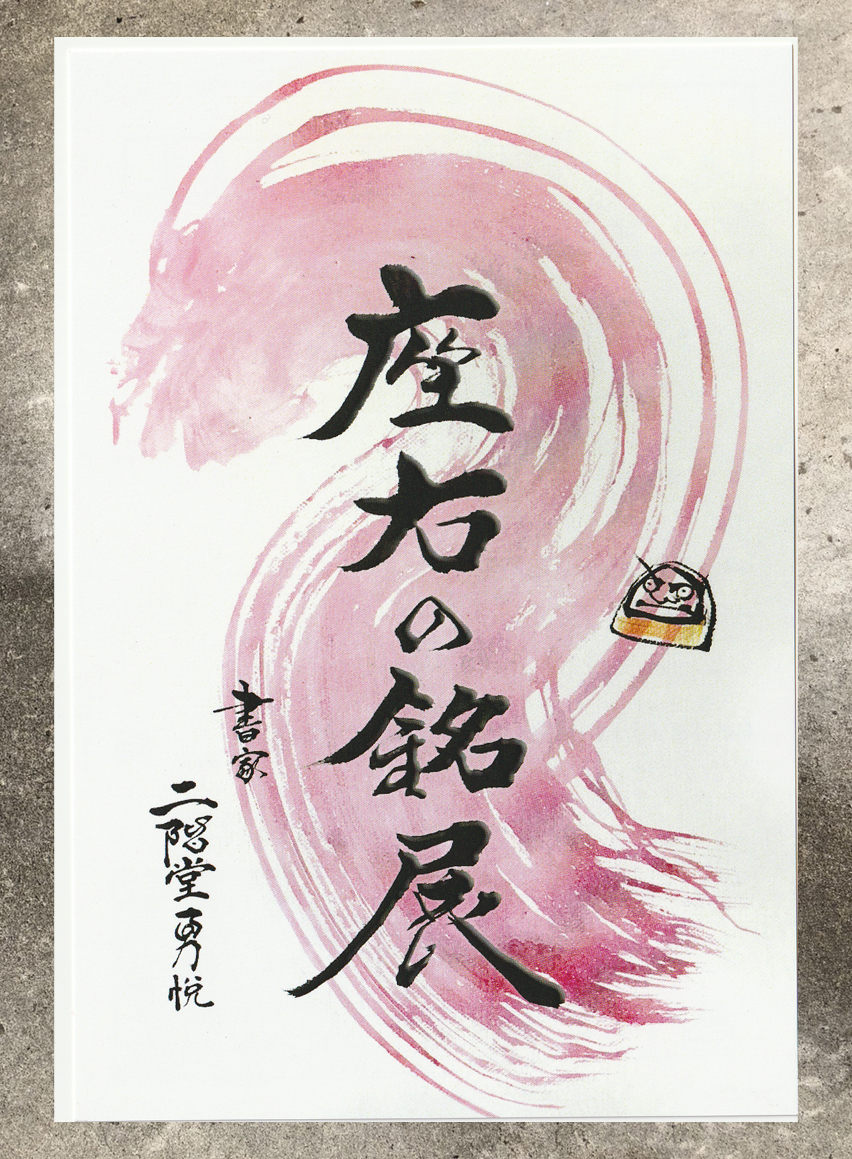 座右の銘展
書家
二階堂勇悦